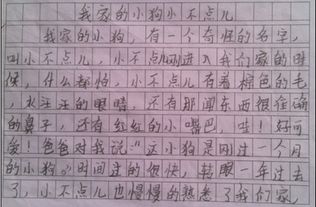 我家的小狗小不点儿
我家的小狗,有一个奇怪的名字,
叫小不点儿,小不点儿刚进入我们家的时
候,什么都怕,小不点儿有着棕色的毛
,水汪汪的眼睛,还有那闻东西很准确
的鼻子,还有红红的小嘴巴,哇!好可
爱!爸爸对我说:"这小狗是刚过一个月
的小狗。"时间过的很快,转眼一年过去
了,小不点儿也慢慢的熟悉了我们家,